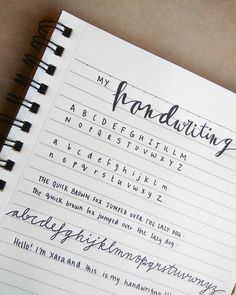 MY handwriting
A B C D E F G H I J K L M
N O P Q R S T U V W X Y Z
a b c d e f g h i j k l m
n o p q r s t u v w x y z
THE QUICK BROWN FOX JUMPED OVER THE LAZY DOG.
the quick brown fox jumped over the lazy dog.
abcdefghijklmnopqrstuvwxyz
Hello! I'm Xara and this is my handwriting